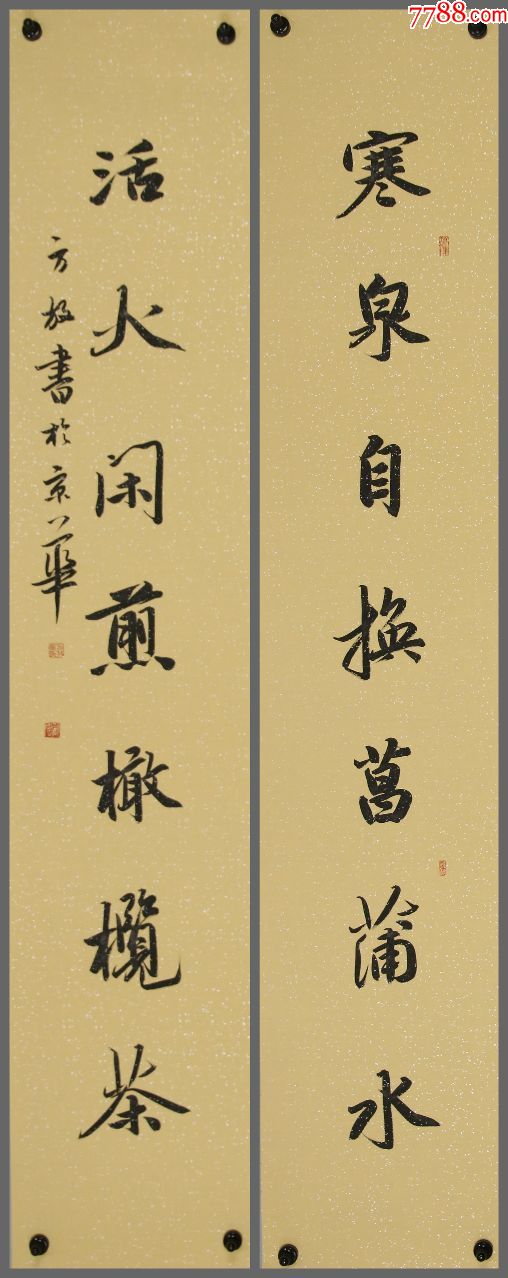 7788.com
寒泉自换菖蒲水
活火闲煎橄欖茶
方放書於京華